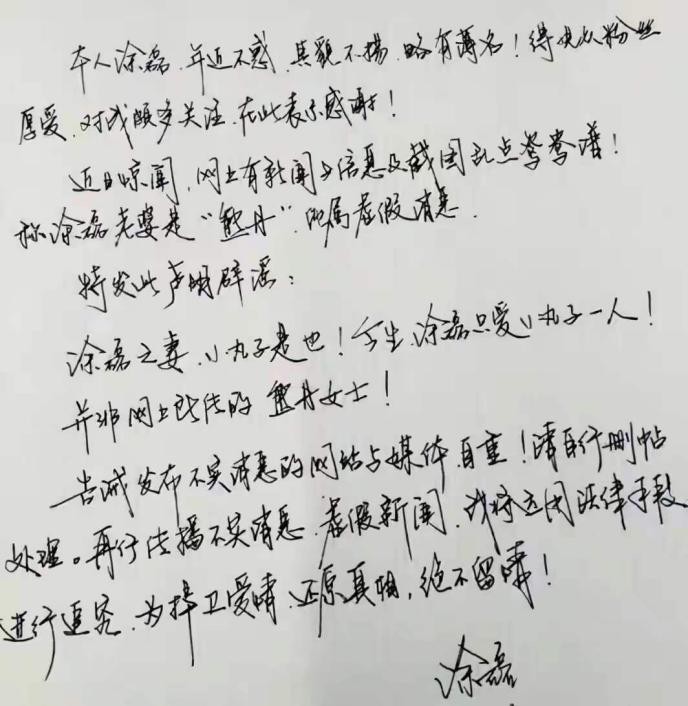 本人涂磊、年近不惑、其貌不揚、略有薄名！得大众粉丝
厚爱、对我颇多关注、在此表示感谢！
近日惊闻、网上有新闻与信息及截图乱点鸳鸯谱！
称涂磊老婆是“熊丹”、纯属虚假消息.
特发此声明辟谣：
涂磊之妻、小丸子是也！今生、涂磊只爱小丸子一人！
并非网上所传的 熊丹女士！
告诫发布不实消息的网站与媒体、自重！请自行删帖
处理。再行传播不实消息、虚假新闻、我将运用法律手段
进行追究、为捍卫爱情、还原真相，绝不留情！
涂磊